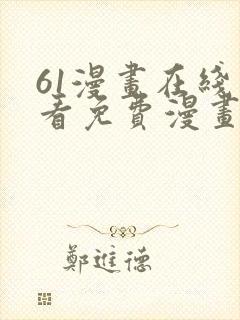 61漫畫在綫
看免費漫畫
鄭進德